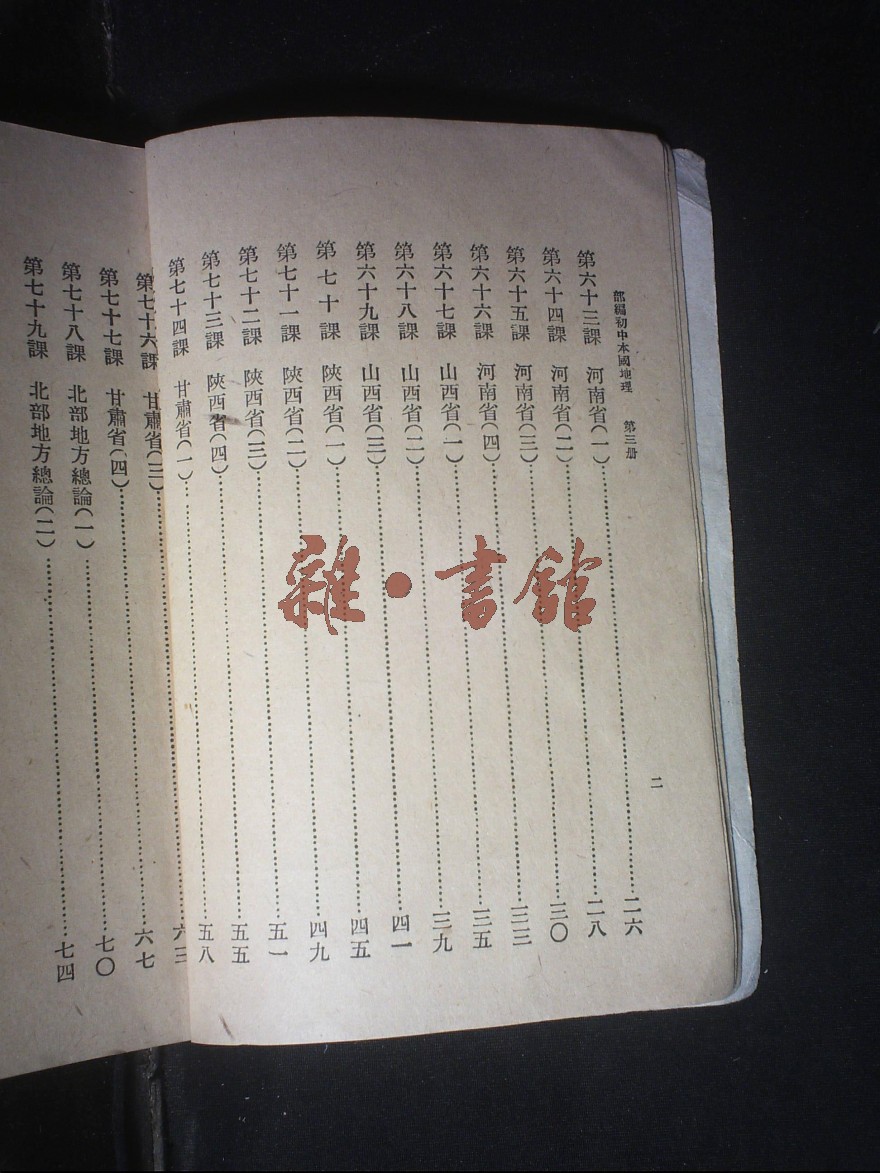 部編初中本國地理 第三册
二
第六十三課 河南省(一)……二六
第六十四課 河南省(二)……二八
第六十五課 河南省(三)……三〇
第六十六課 河南省(四)……三三
第六十七課 山西省(一)……三五
第六十八課 山西省(二)……三九
第六十九課 山西省(三)……四一
第七十課 陝西省(一)……四五
第七十一課 陝西省(二)……四九
第七十二課 陝西省(三)……五一
第七十三課 陝西省(四)……五五
第七十四課 甘肅省(一)……五八
第七十六課 甘肅省(三)……六三
第七十七課 甘肅省(四)……六七
第七十八課 北部地方總論(一)……七〇
第七十九課 北部地方總論(二)……七四
雜·書館